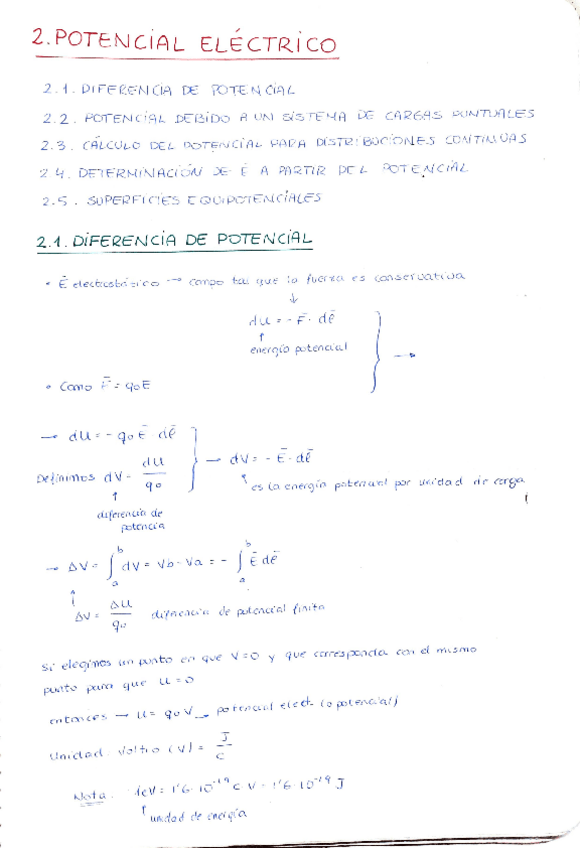 2. POTENCIAL ELÉCTRICO
2.1. DIFERENCIA DE POTENCIAL
2.2. POTENCIAL DEBIDO A UN SISTEMA DE CARGAS PUNTUALES
2.3. CÁLCULO DEL POTENCIAL PARA DISTRIBUCIONES CONTINUAS
2.4. DETERMINACIÓN DE Ē A PARTIR DEL POTENCIAL
2.5. SUPERFICIES EQUIPOTENCIALES
2.1. DIFERENCIA DE POTENCIAL
• Ē electrostático → campo tal que la fuerza es conservativa
↓
dU = - F̄ · dℓ̄
↑
energía potencial } →
• Como F̄ = q₀E
→ dU = - q₀ Ē dℓ̄
Definimos dV = dU/q₀ } → dV = - Ē · dℓ̄
↑ es la energía potencial por unidad de carga
↑
diferencia de
potencia
→ ΔV = ∫ₐᵇ dV = Vb - Va = - ∫ₐᵇ Ē dℓ̄
↑
ΔV = ΔU/q₀ diferencia de potencial finita
si elegimos un punto en que V=0 y que corresponda con el mismo
punto para que U=0
entonces → U = q₀V → potencial elect. (o potencial)
Unidad: Voltio (V) = J/C
Nota: 1eV = 1'6·10⁻¹⁹ C V = 1'6·10⁻¹⁹ J
↑ unidad de energía